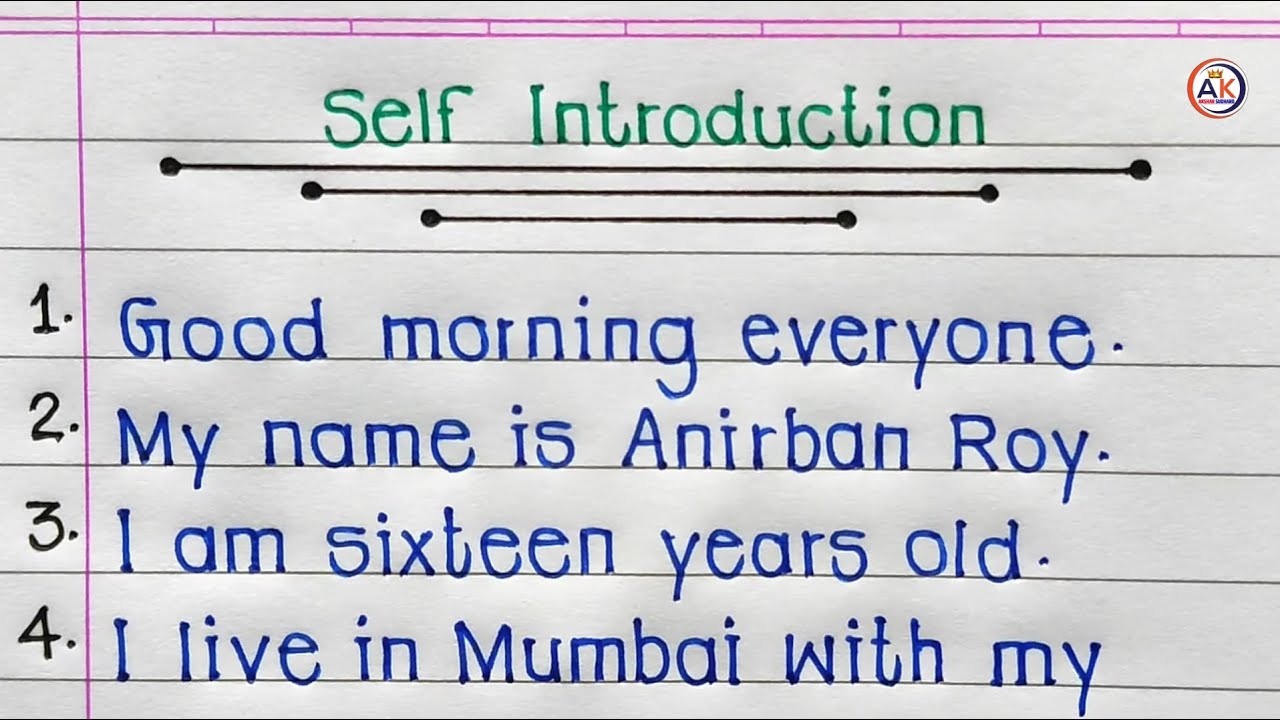 Self Introduction
AK
AKSHAR SUDHARO
1. Good morning everyone.
2. My name is Anirban Roy.
3. I am sixteen years old.
4. I live in Mumbai with my